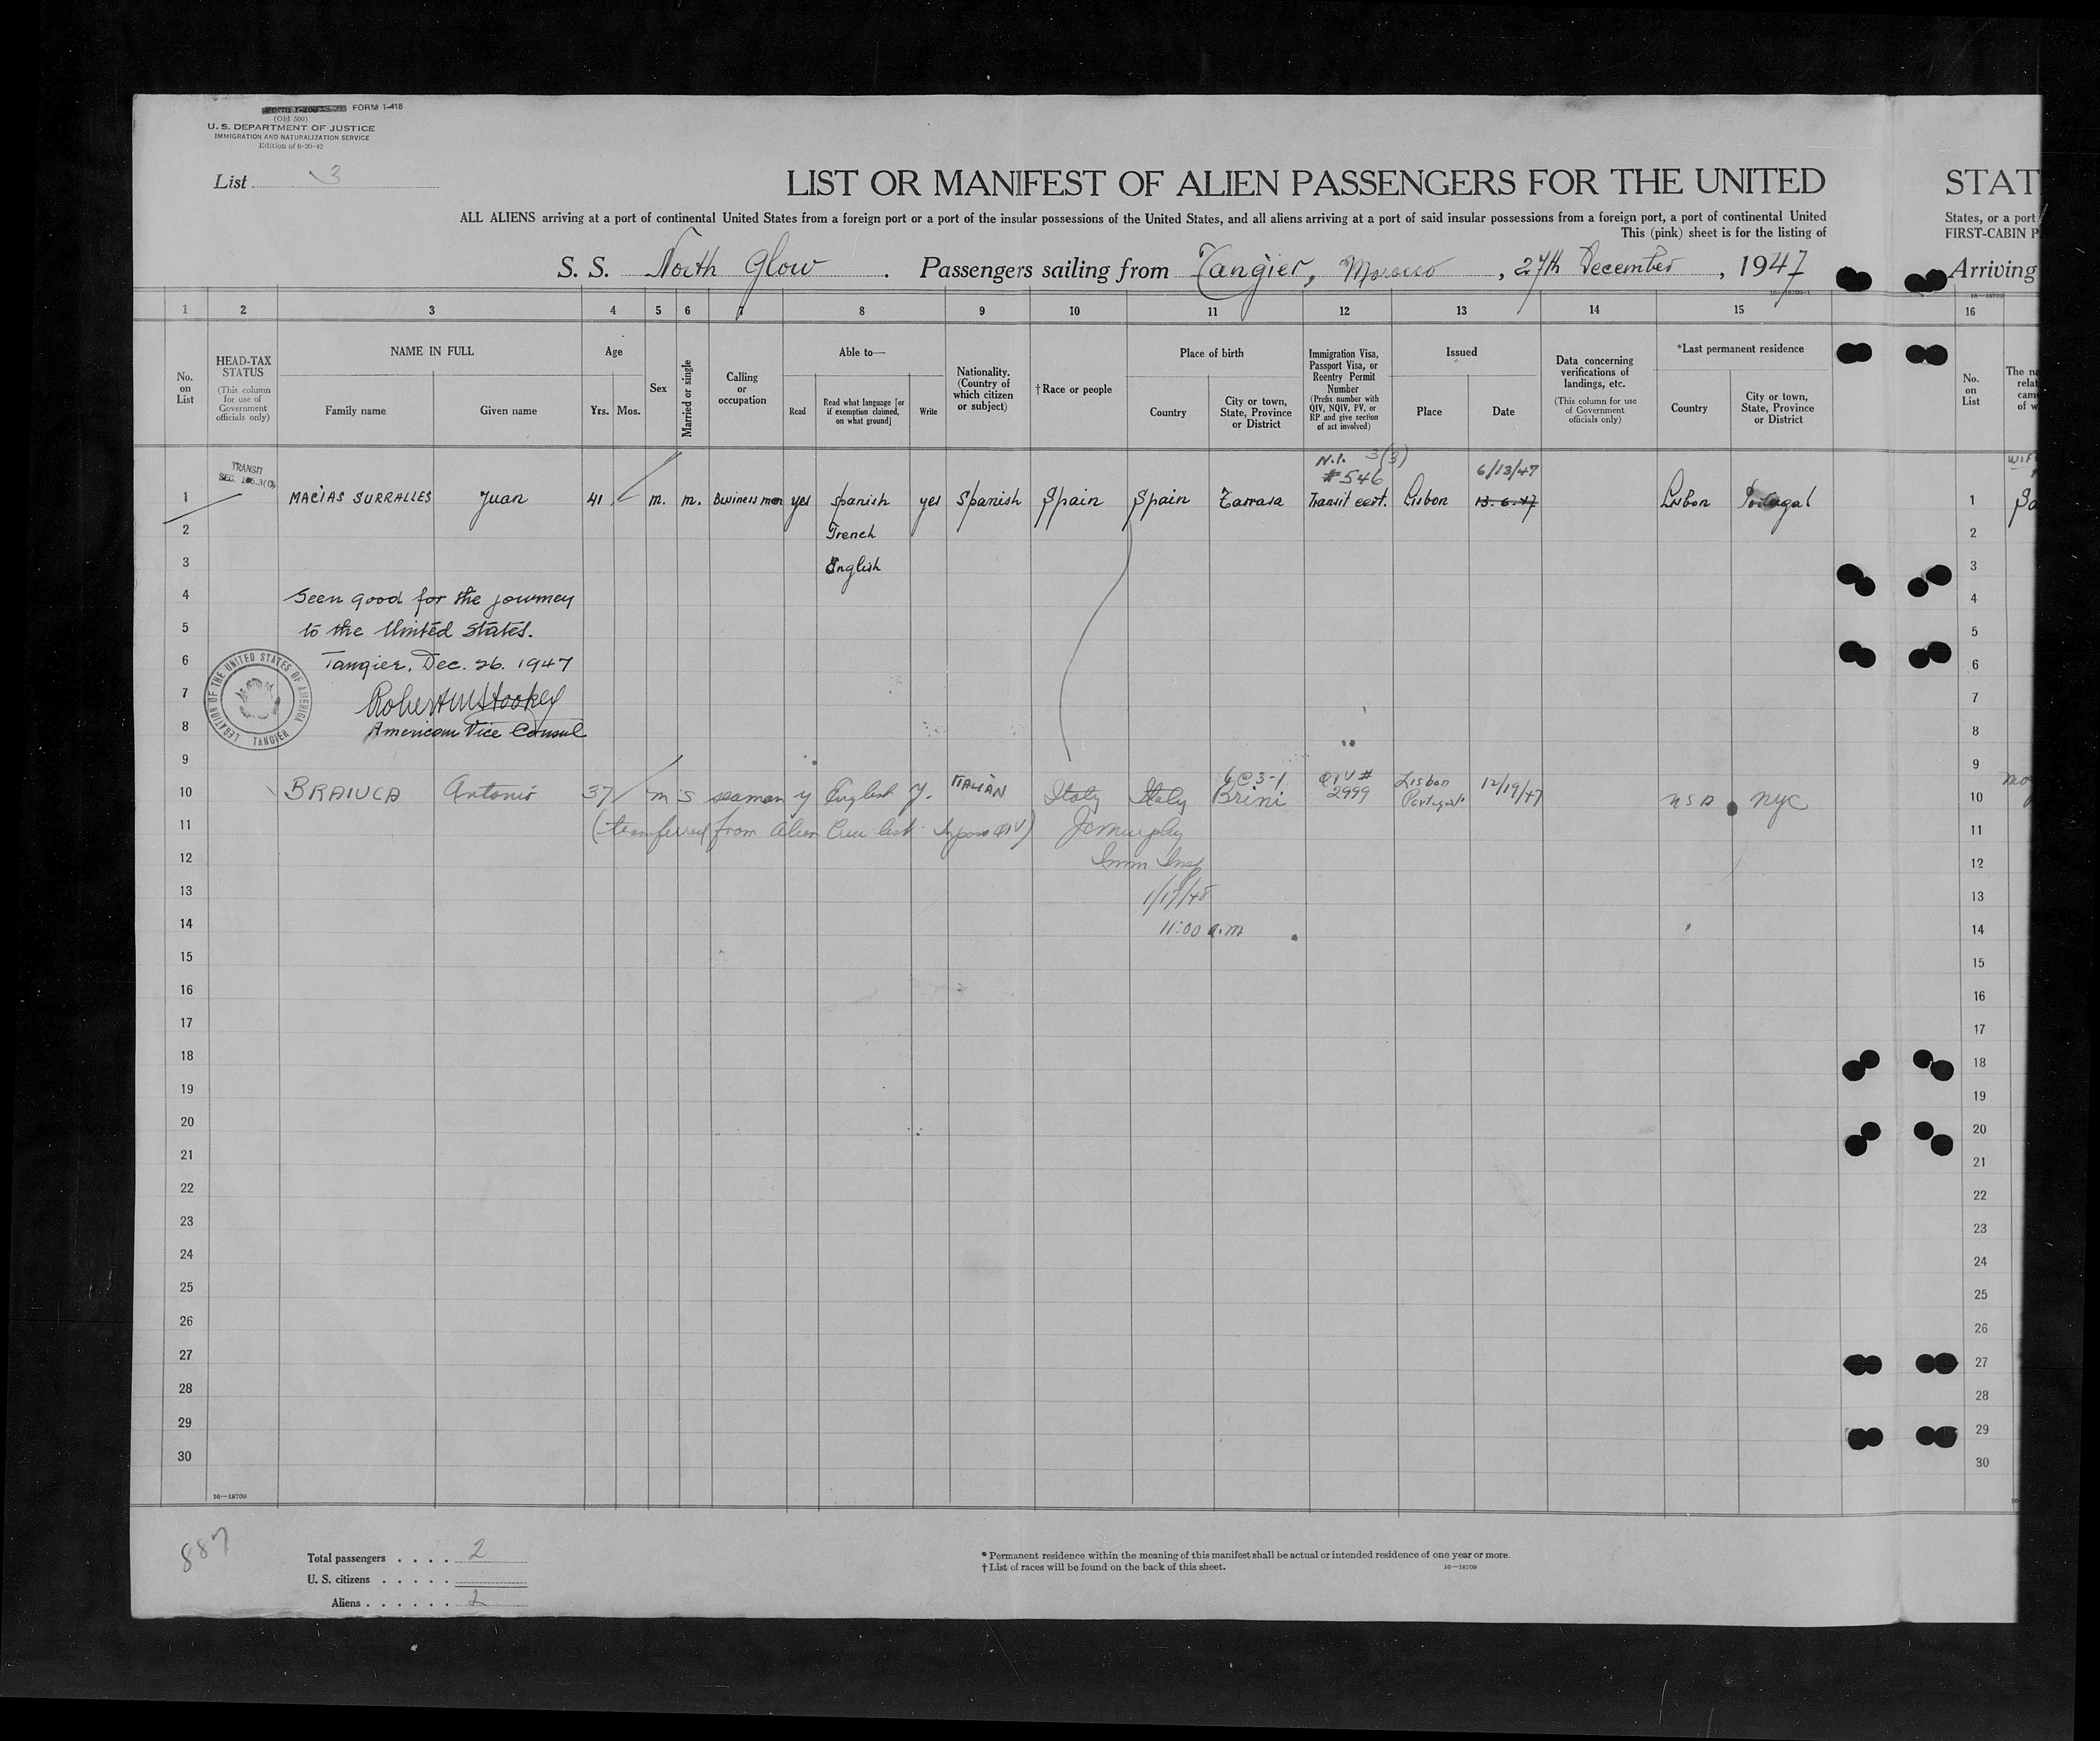 FORM I-418
(Old 500)
U. S. DEPARTMENT OF JUSTICE
IMMIGRATION AND NATURALIZATION SERVICE
Edition of 6-20-42
List 3
LIST OR MANIFEST OF ALIEN PASSENGERS FOR THE UNITED STAT
ALL ALIENS arriving at a port of continental United States from a foreign port or a port of the insular possessions of the United States, and all aliens arriving at a port of said insular possessions from a foreign port, a port of continental United States, or a port
This (pink) sheet is for the listing of FIRST-CABIN P
S. S. North Glow . Passengers sailing from Tangier, Morocco , 27th December , 1947 Arriving
1 2 3 4 5 6 7 8 9 10 11 12 13 14 15 16
No. on List
HEAD-TAX STATUS
(This column for use of Government officials only)
NAME IN FULL
Family name Given name
Age
Yrs. Mos.
Sex
Married or single
Calling or occupation
Able to—
Read
Read what language [or if exemption claimed, on what ground]
Write
Nationality. (Country of which citizen or subject)
†Race or people
Place of birth
Country
City or town, State, Province or District
Immigration Visa, Passport Visa, or Reentry Permit Number
(Prefix number with QIV, NQIV, PV, or RP and give section of act involved)
Issued
Place Date
Data concerning verifications of landings, etc.
(This column for use of Government officials only)
*Last permanent residence
Country
City or town, State, Province or District
No. on List
TRANSIT
N.I. 3(3)
#546 6/13/47
1 MACIAS SURRALLES Juan 41 m. m. Business man yes Spanish yes Spanish Spain Spain Tarrasa Transit cert. Lisbon 13-6-47 Lisbon Portugal 1
2 French 2
3 English 3
4 Seen good for the journey 4
5 to the United States. 5
6 Tangier, Dec. 26. 1947 6
LEGATION OF THE UNITED STATES OF AMERICA TANGIER
7 7
8 American Vice Consul 8
9 9
10 BRAIUCA Antonio 37 m s seaman y English y. ITALIAN Italy Italy Brini QIV # 2999 Lisbon Portugal 12/19/47 USA NYC 10
11 (transferred from Alien Crew list QIV) JCMurphy 11
12 Imm Insp 12
13 13
14 11:00 a.m 14
15 15
16 16
17 17
18 18
19 19
20 20
21 21
22 22
23 23
24 24
25 25
26 26
27 27
28 28
29 29
30 30
16—18709
887
Total passengers . . . . 2
U. S. citizens . . . . .
Aliens . . . . . . 2
* Permanent residence within the meaning of this manifest shall be actual or intended residence of one year or more.
† List of races will be found on the back of this sheet.
16—18709